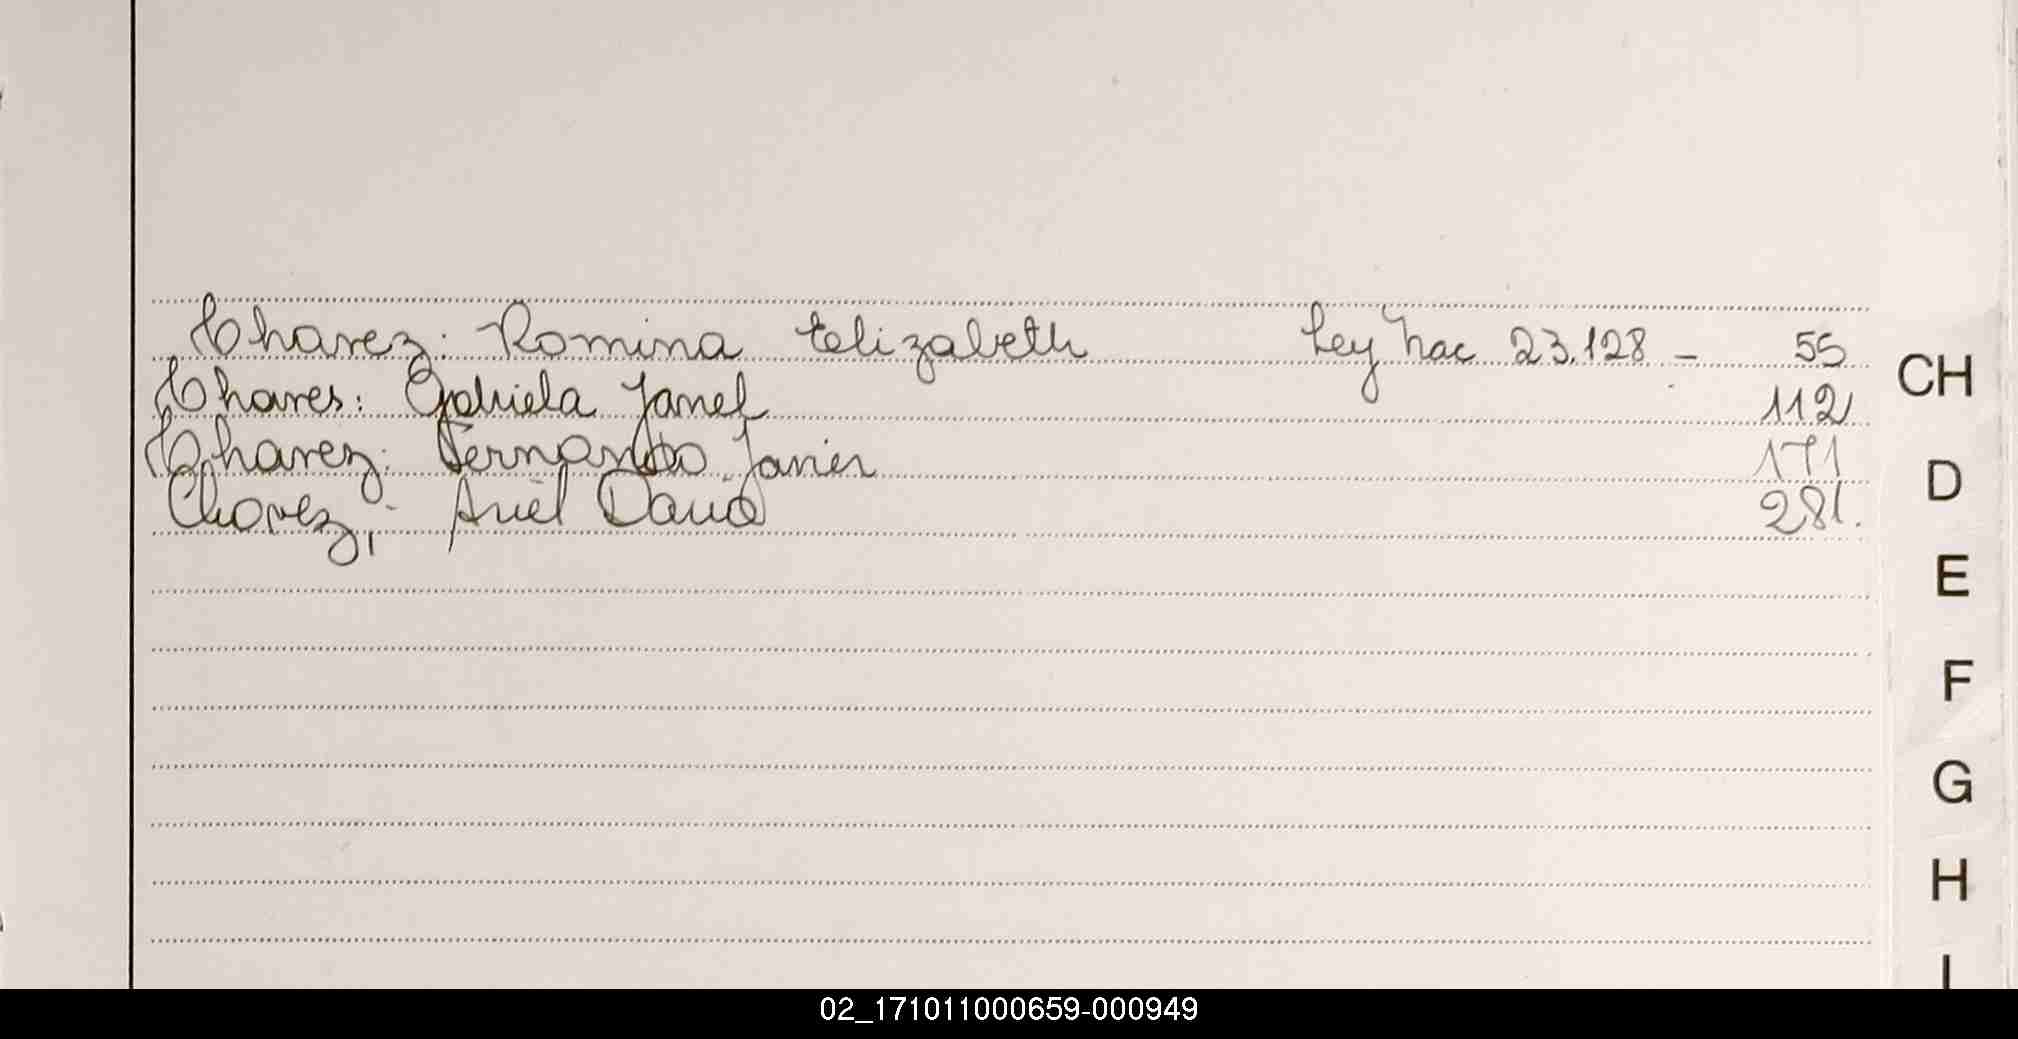 Chavez: Romina Elizabeth Ley Nac 23.128 - 55
Chaves: Gabriela Janel 112
Chavez: Fernando Javier 171
Chavez,: Ariel David 281.
CH
D
E
F
G
H
I
02_171011000659-000949